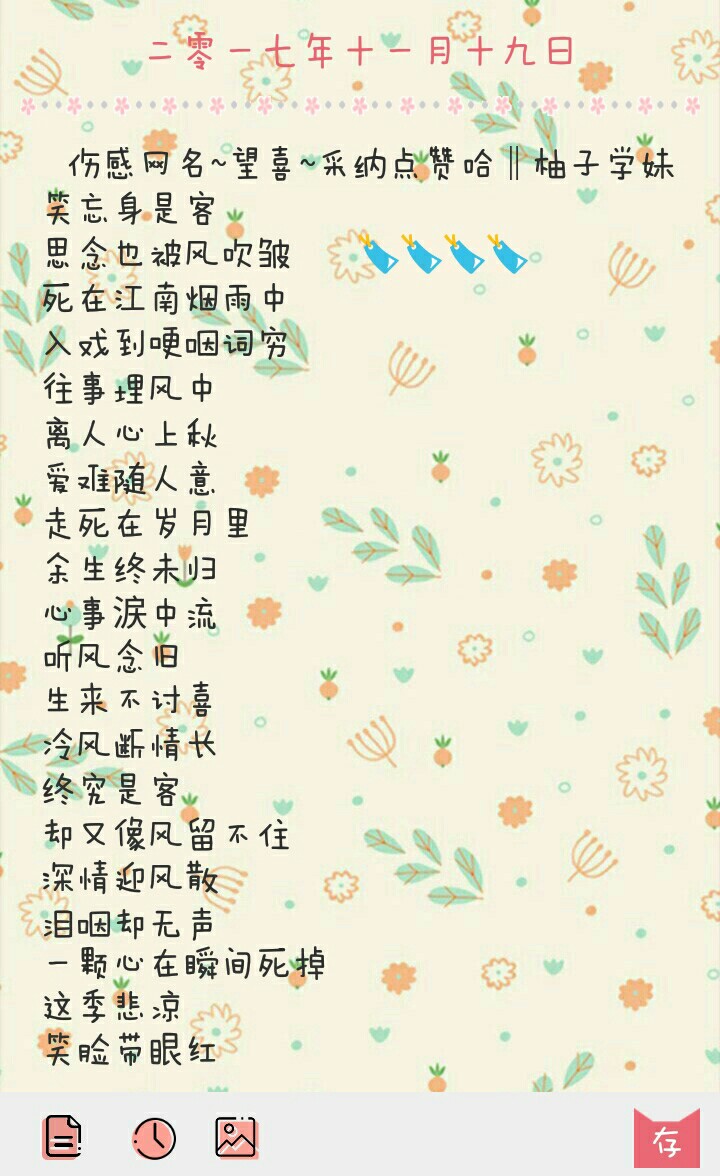 二零一七年十一月十九日
伤感网名~望喜~采纳点赞哈‖柚子学妹
笑忘身是客
思念也被风吹皱
死在江南烟雨中
入戏到哽咽词穷
往事埋风中
离人心上秋
爱难随人意
走死在岁月里
余生终未归
心事涙中流
听风念旧
生来不讨喜
冷风断情长
终究是客
却又像风留不住
深情迎风散
泪咽却无声
一颗心在瞬间死掉
这季悲凉
笑脸带眼红
存